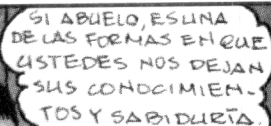 SI ABUELO, ES UNA
DE LAS FORMAS EN QUE
USTEDES NOS DEJAN
SUS CONOCIMIEN-
TOS Y SABIDURÍA.